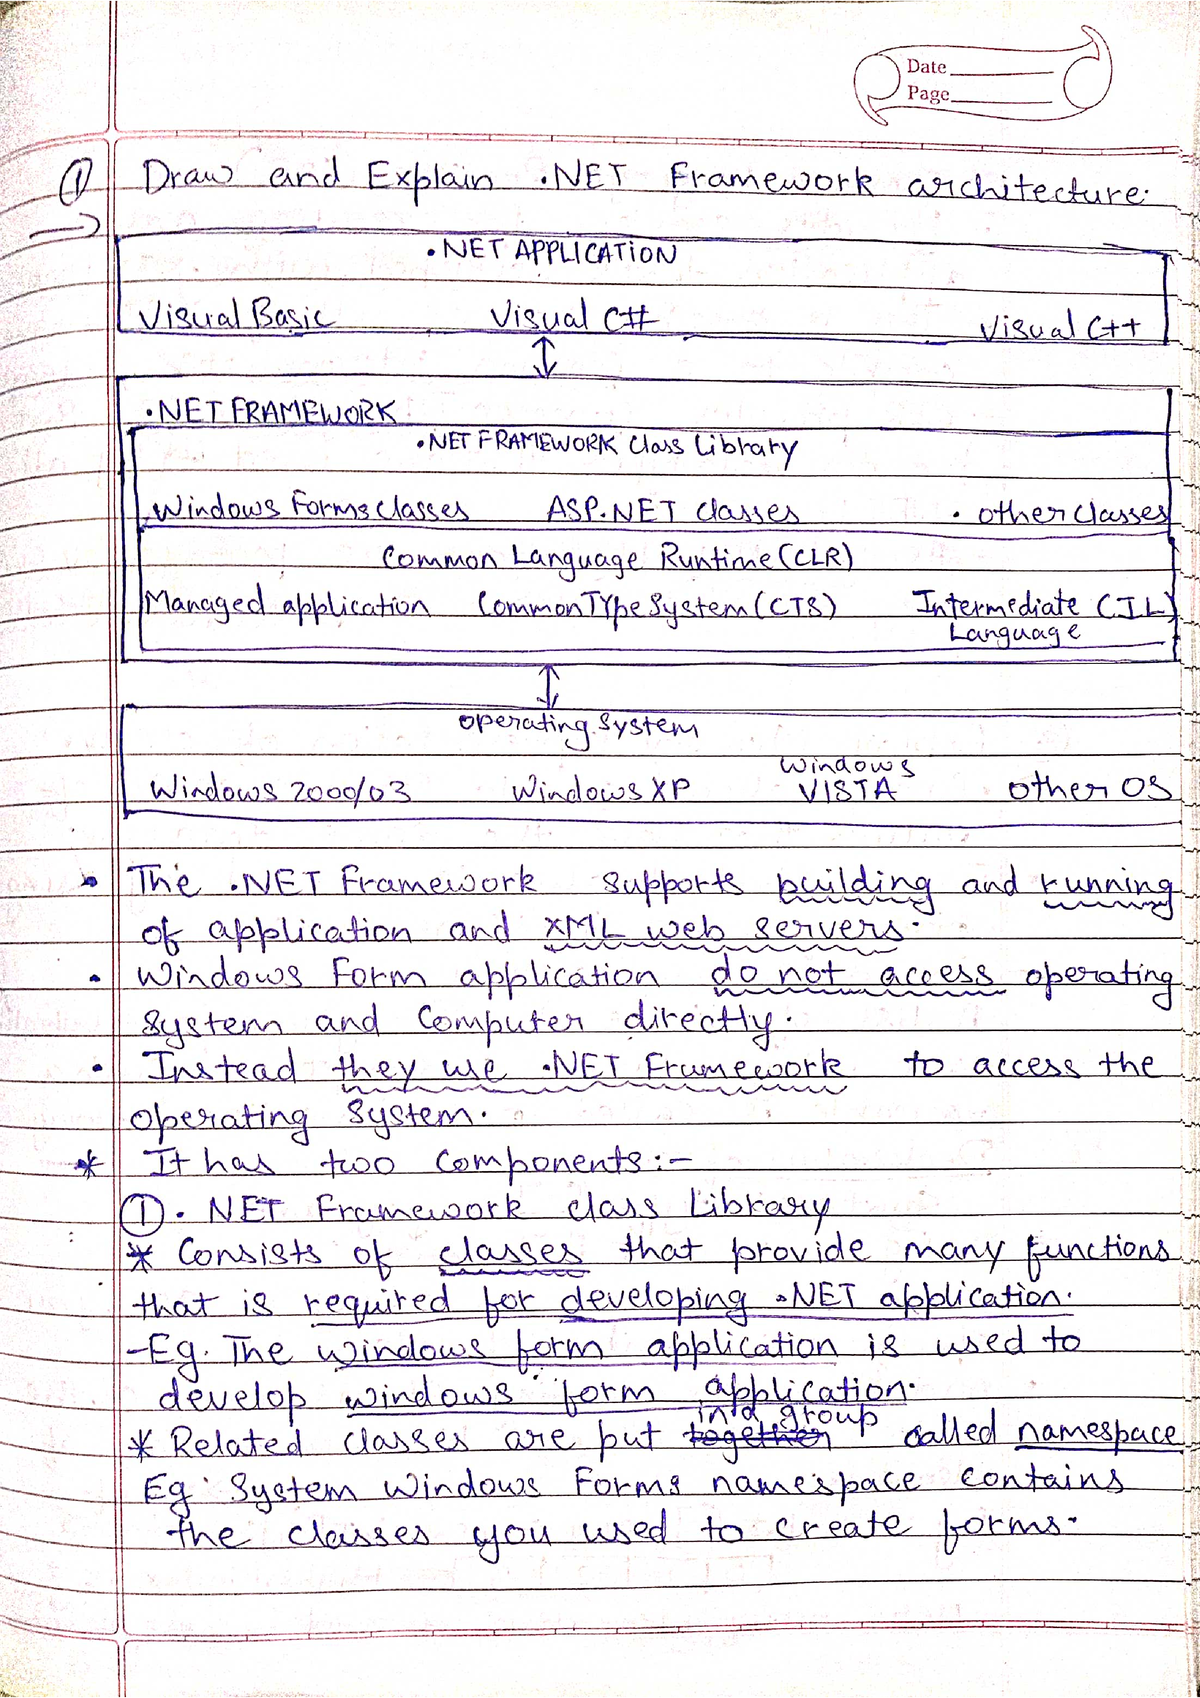 Date
Page
① Draw and Explain .NET Framework architecture.
.NET APPLICATION
Visual Basic Visual C# Visual C++
.NET FRAMEWORK
.NET FRAMEWORK Class Library
Windows Forms classes ASP.NET classes . other classes
Common Language Runtime (CLR)
Managed application Common Type System (CTS) Intermediate (IL)
Language
operating system
Windows
Windows 2000/03 Windows XP VISTA other OS
• The .NET Framework supports building and running
of application and XML web servers.
• Windows Form application do not access operating
system and computer directly.
• Instead they use .NET Framework to access the
operating system.
* It has two components:-
① . NET Framework class Library
* Consists of classes that provide many functions
that is required for developing .NET application.
-Eg. The windows form application is used to
develop windows form application.
in a group
* Related classes are put together called namespace
Eg. System Windows Forms namespace contains
the classes you used to create forms.